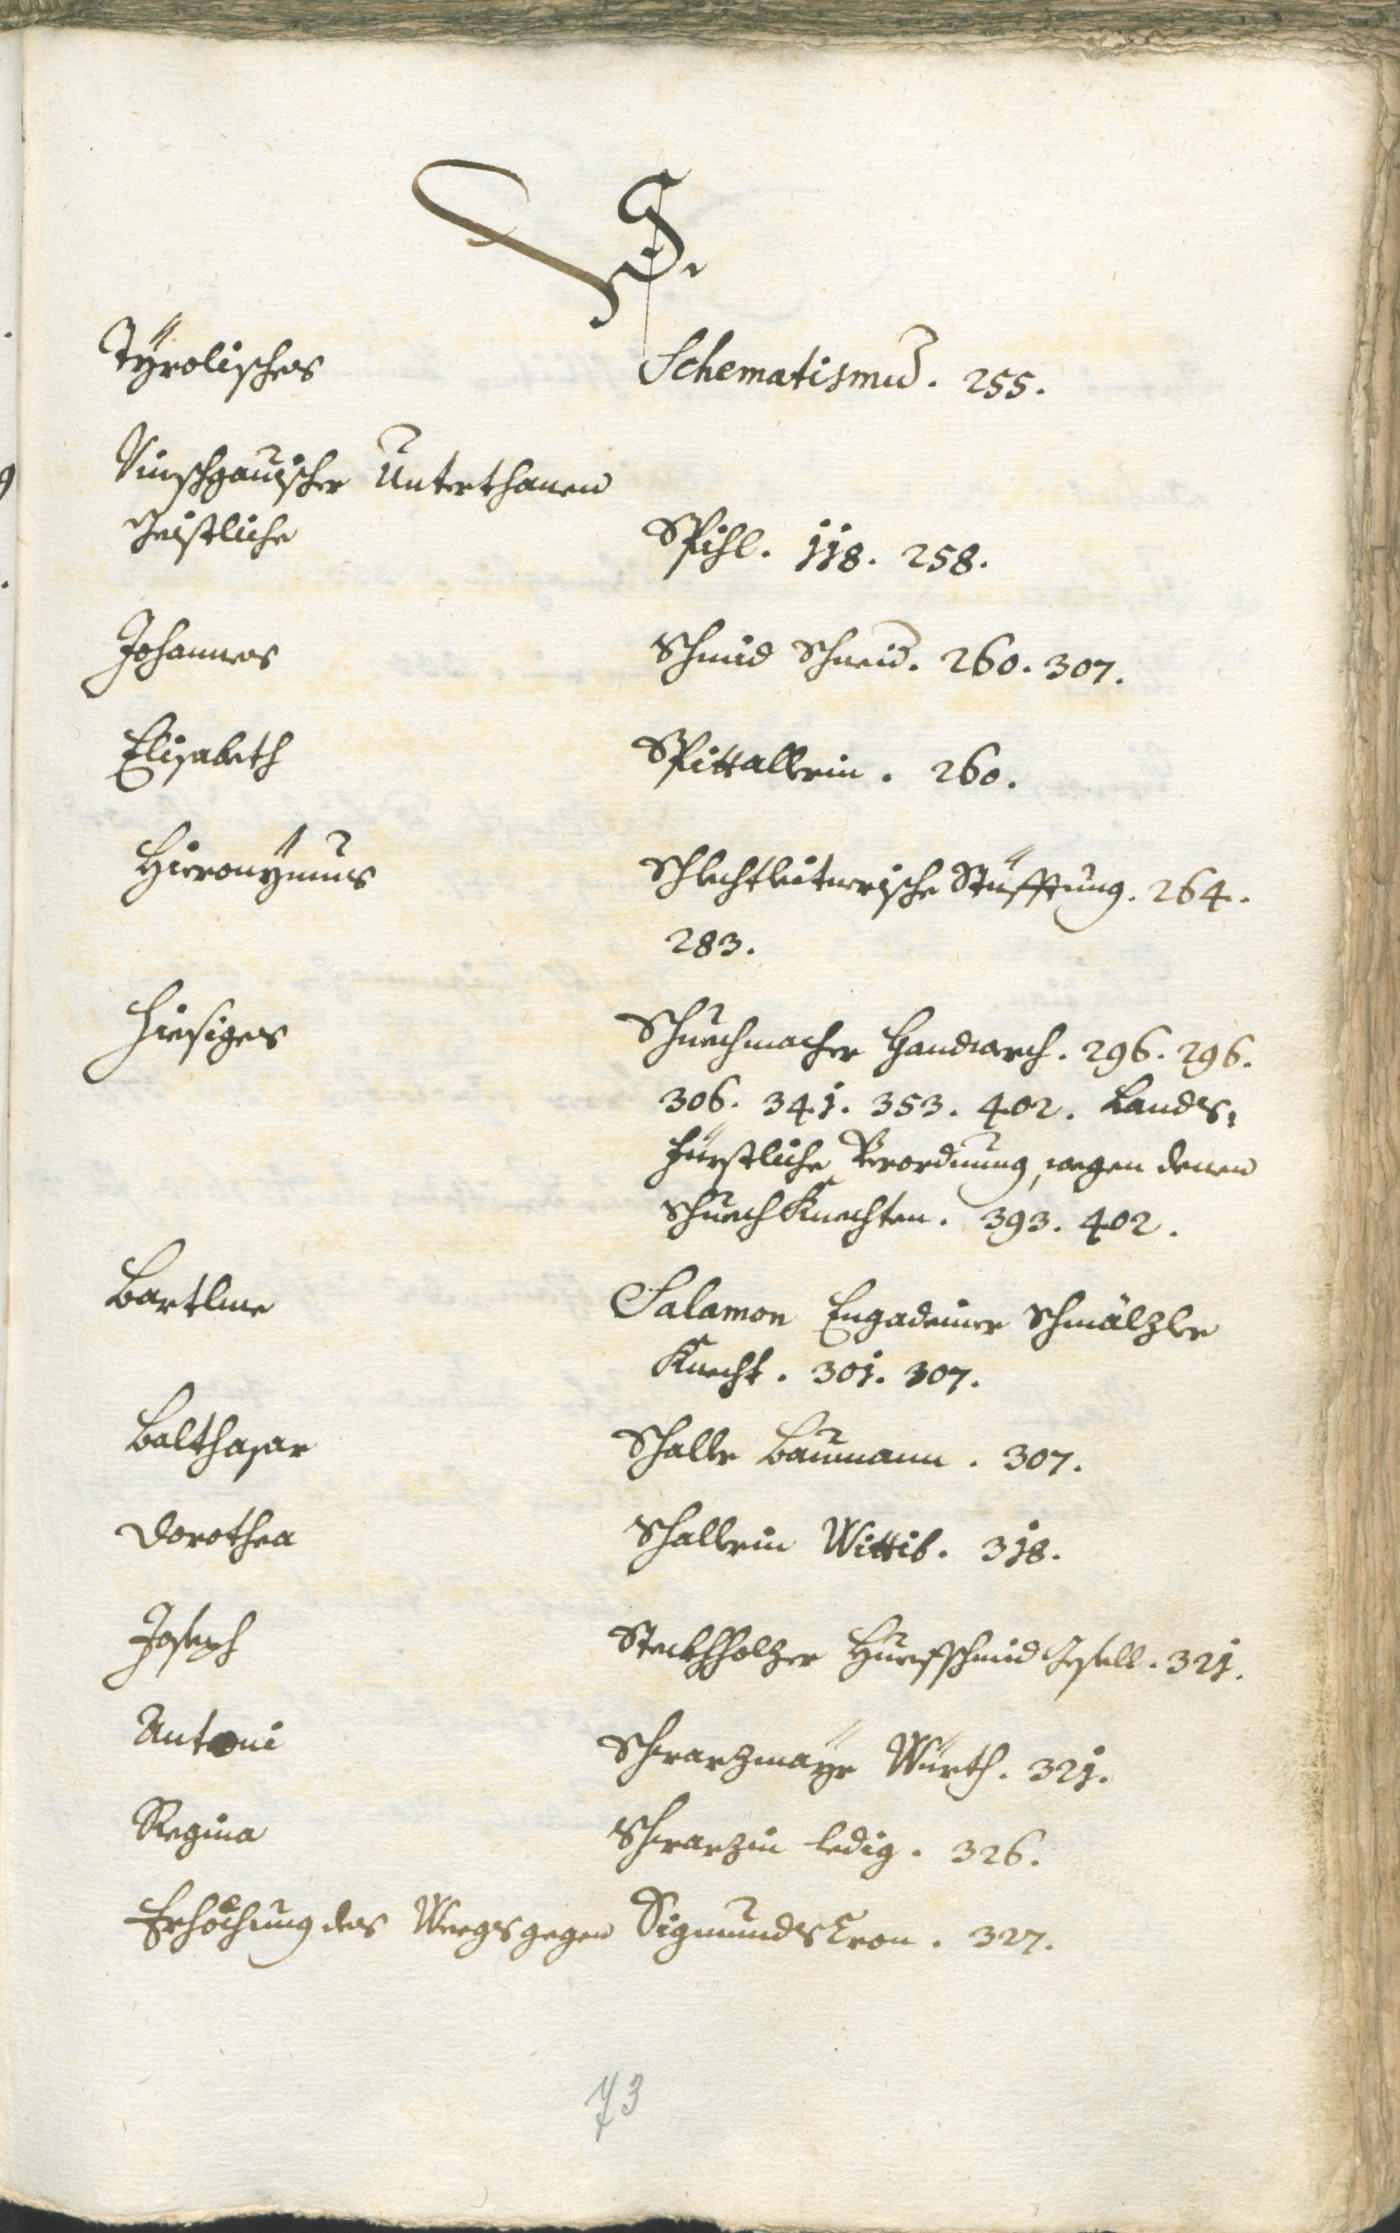 S.
Tÿrolisches Schematismus. 255.
Vinschgauischer Unterthanen
Geistliche Spihl. 118. 258.
Johannes Schmid Schneid. 260. 307.
Elisabeth Spittallerin. 260.
Hieronÿmus Schlechtleiterische Stüfftung. 264.
283.
Hiesiges Schuechmacher Handwerch. 296. 296.
306. 341. 353. 402. Lands-
fürstliche Verordnung, wegen denen
Schuech Knechten. 393. 402.
Bartlme Salamon Engadeiner Schmälzler
Knecht. 301. 307.
Balthasar Schaller Baumann. 307.
Dorothea Schallerin Wittib. 318.
Joseph Steckhholzer Huefschmid Gesell. 321.
Antoni Schwarzmaÿr Würth. 321.
Regina Schwarzin ledig. 326.
Erhöchung des Weegs gegen Sigmundskron. 327.
73